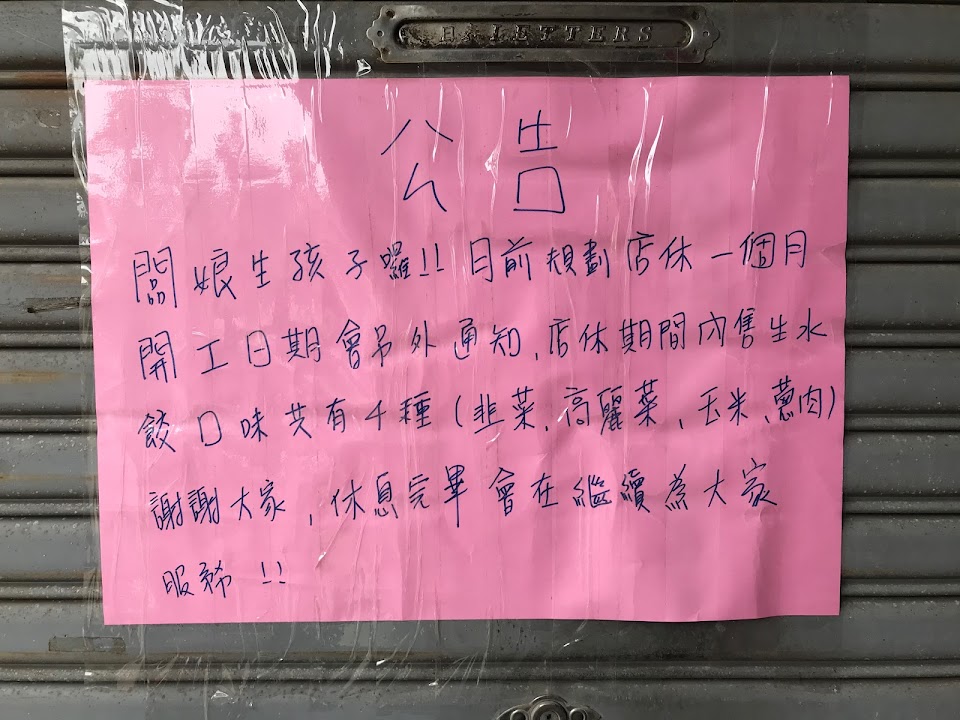 LETTERS
公告
闆娘生孩子囉!! 目前規劃店休一個月
開工日期會另外通知,店休期間內售生水
餃口味共有4種(韭菜、高麗菜、玉米、蔥肉)
謝謝大家,休息完畢會在繼續為大家
服務!!